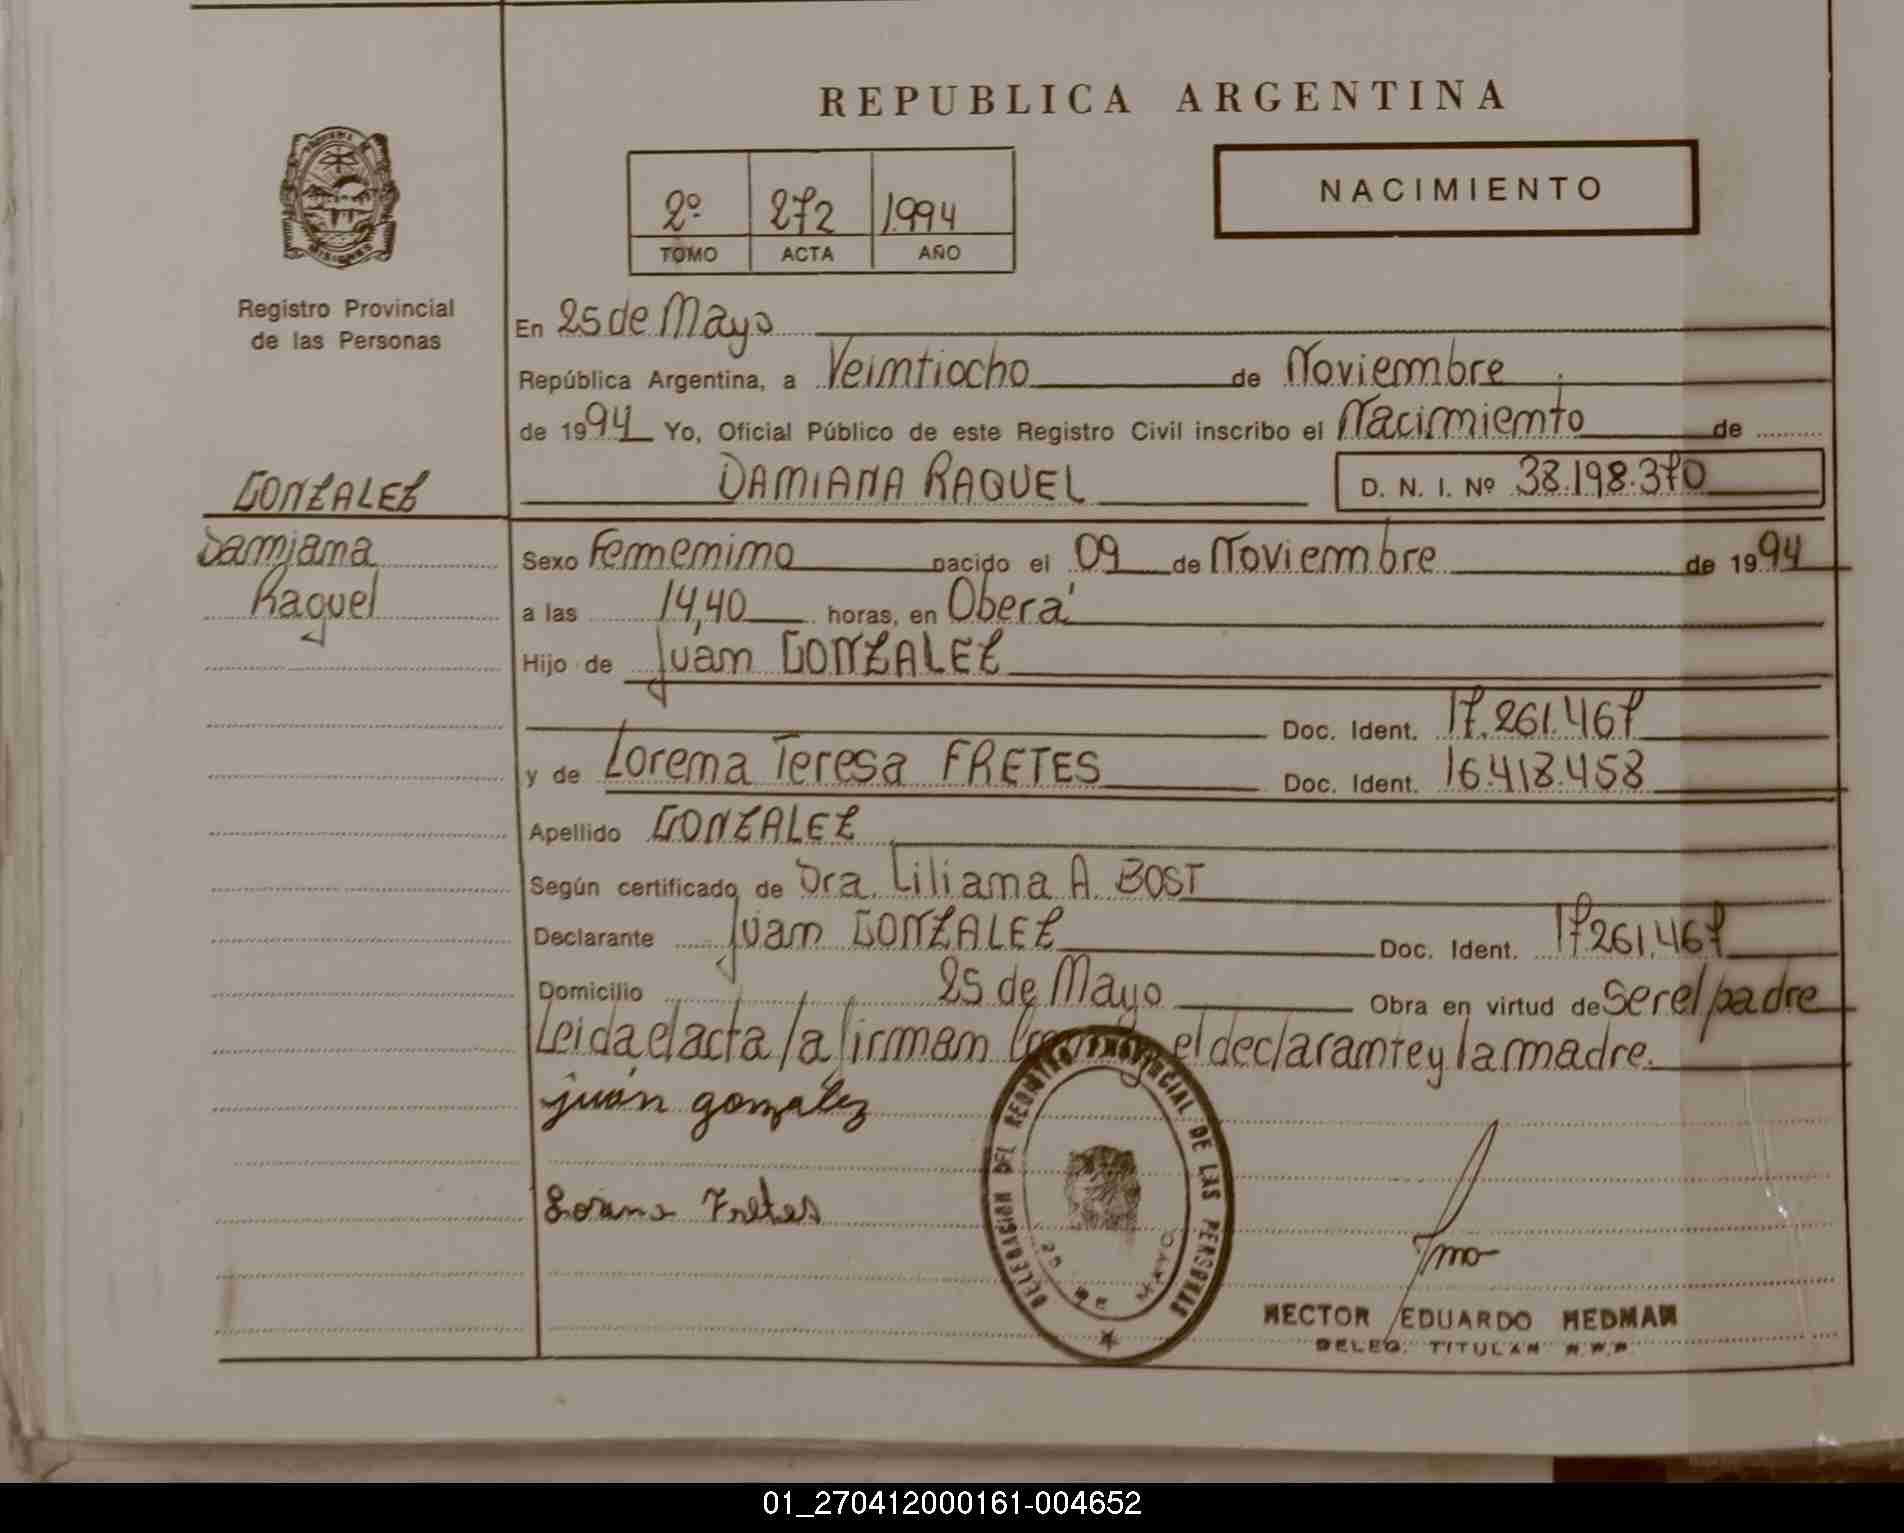 REPUBLICA ARGENTINA
NACIMIENTO
2º 272 1.994
TOMO ACTA AÑO
Registro Provincial
de las Personas
En 25 de Mayo
República Argentina, a Veintiocho de Noviembre
de 1994 Yo, Oficial Público de este Registro Civil inscribo el Nacimiento de
GONZALEZ
DAMIANA RAQUEL D. N. I. Nº 38.198.370
Damiana
Raquel
Sexo Femenino nacido el 09 de Noviembre de 1994
a las 14,40 horas, en Oberá
Hijo de Juan GONZALEZ
Doc. Ident. 17.261.467
y de Lorena Teresa FRETES Doc. Ident. 16.418.458
Apellido GONZALEZ
Según certificado de Dra. Liliana A. BOST
Declarante Juan GONZALEZ Doc. Ident. 17261.467
Domicilio 25 de Mayo Obra en virtud de Ser el padre
Leida el acta la firman el declarante y la madre.
juán gonzález
Lorena Fretes
DELEGACION DEL REGISTRO PROVINCIAL DE LAS PERSONAS
25 DE MAYO
HECTOR EDUARDO HEDMAN
DELEG. TITULAR R.P.P.
01_270412000161-004652